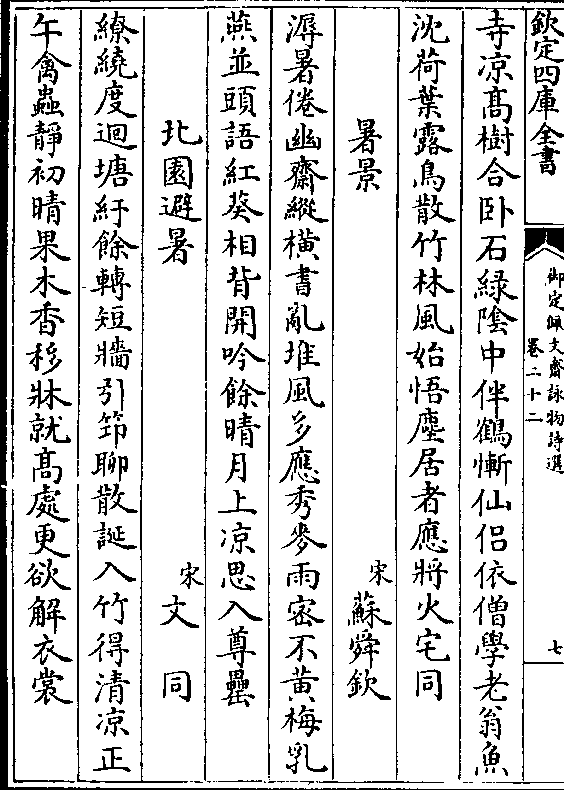 欽定四庫全書
御定佩文齋詠物詩選
卷二十二
七
寺凉髙樹合卧石緑陰中伴鶴慚仙侣依僧學老翁魚
沈荷葉露鳥散竹林風始悟塵居者應將火宅同
暑景
宋 蘇舜欽
溽暑倦幽齋縱横書亂堆風多應秀麥雨密不黄梅乳
燕並頭語紅葵相背開吟餘晴月上凉思入尊罍
北園避暑
宋 文 同
繚繞度迴塘紆餘轉短牆引笻聊散誕入竹得清凉正
午禽蟲靜初晴果木香移牀就髙處更欲解衣裳